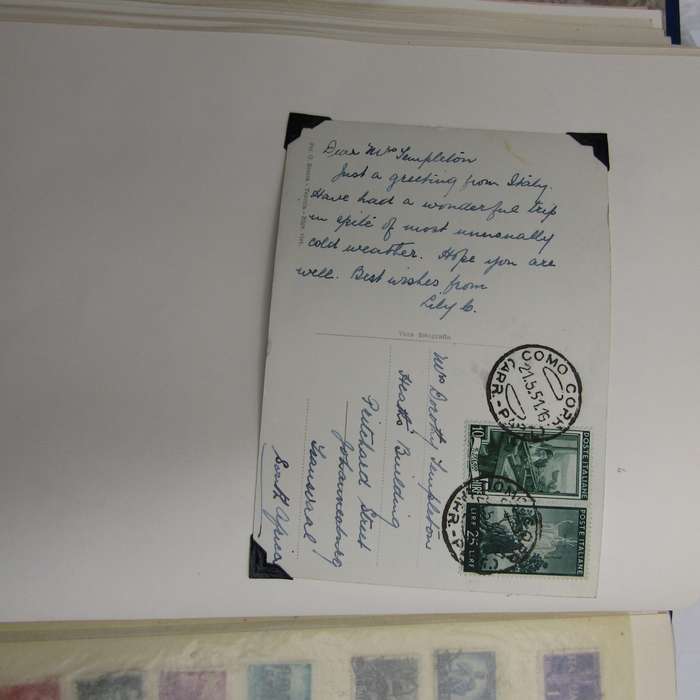 Dear Mrs Templeton
Just a greeting from Italy.
Have had a wonderful trip
in spite of most unusually
cold weather. Hope you are
well. Best wishes from
Lily C.
Vera fotografia
Mrs Dorothy Templeton
Heaths Building
Pritchard Street
Johannesburg
Transvaal
South Africa
COMO CORR.
21.5.51.16
(ARR.-P
POSTE ITALIANE
10
LIRE
POSTE ITALIANE
LIRE 25 LIRE